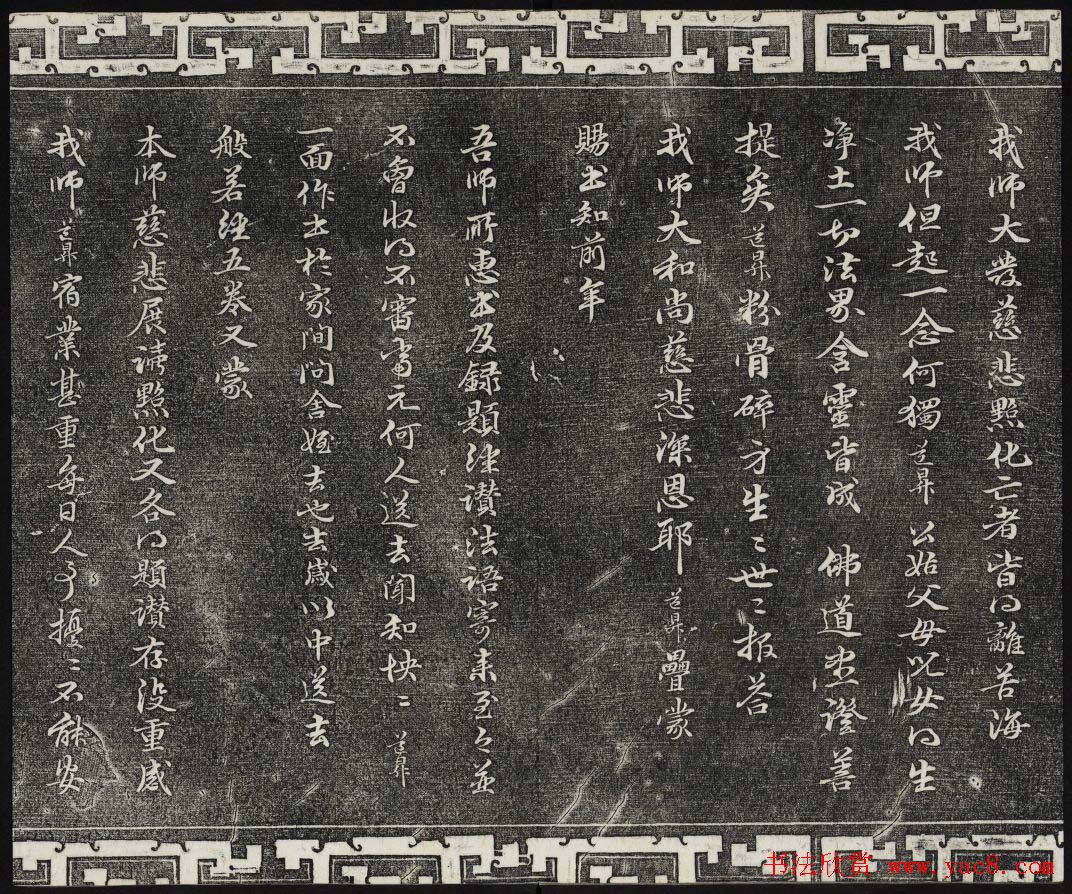 我師大發慈悲點化亡者皆得離苦海
我師但起一念何獨道昇公姑父母兒女得生
净土一切法界含靈皆成 佛道盡證菩
提矣道昇粉骨碎身生〻世〻報答
我師大和尚慈悲深恩耶道昇疊蒙
賜書知前年
吾師所惠書及録題經讃法語寄来至之並
不曾收得不審當元何人送去聞知怏〻道昇
一面作書於家間問舍姪去也去歲以中送去
般若經五卷又蒙
本師慈悲展讀點化又各得題讃存没重感
我師道昇宿業甚重每日人事擾〻不能安
书法欣赏 www.yac8.com